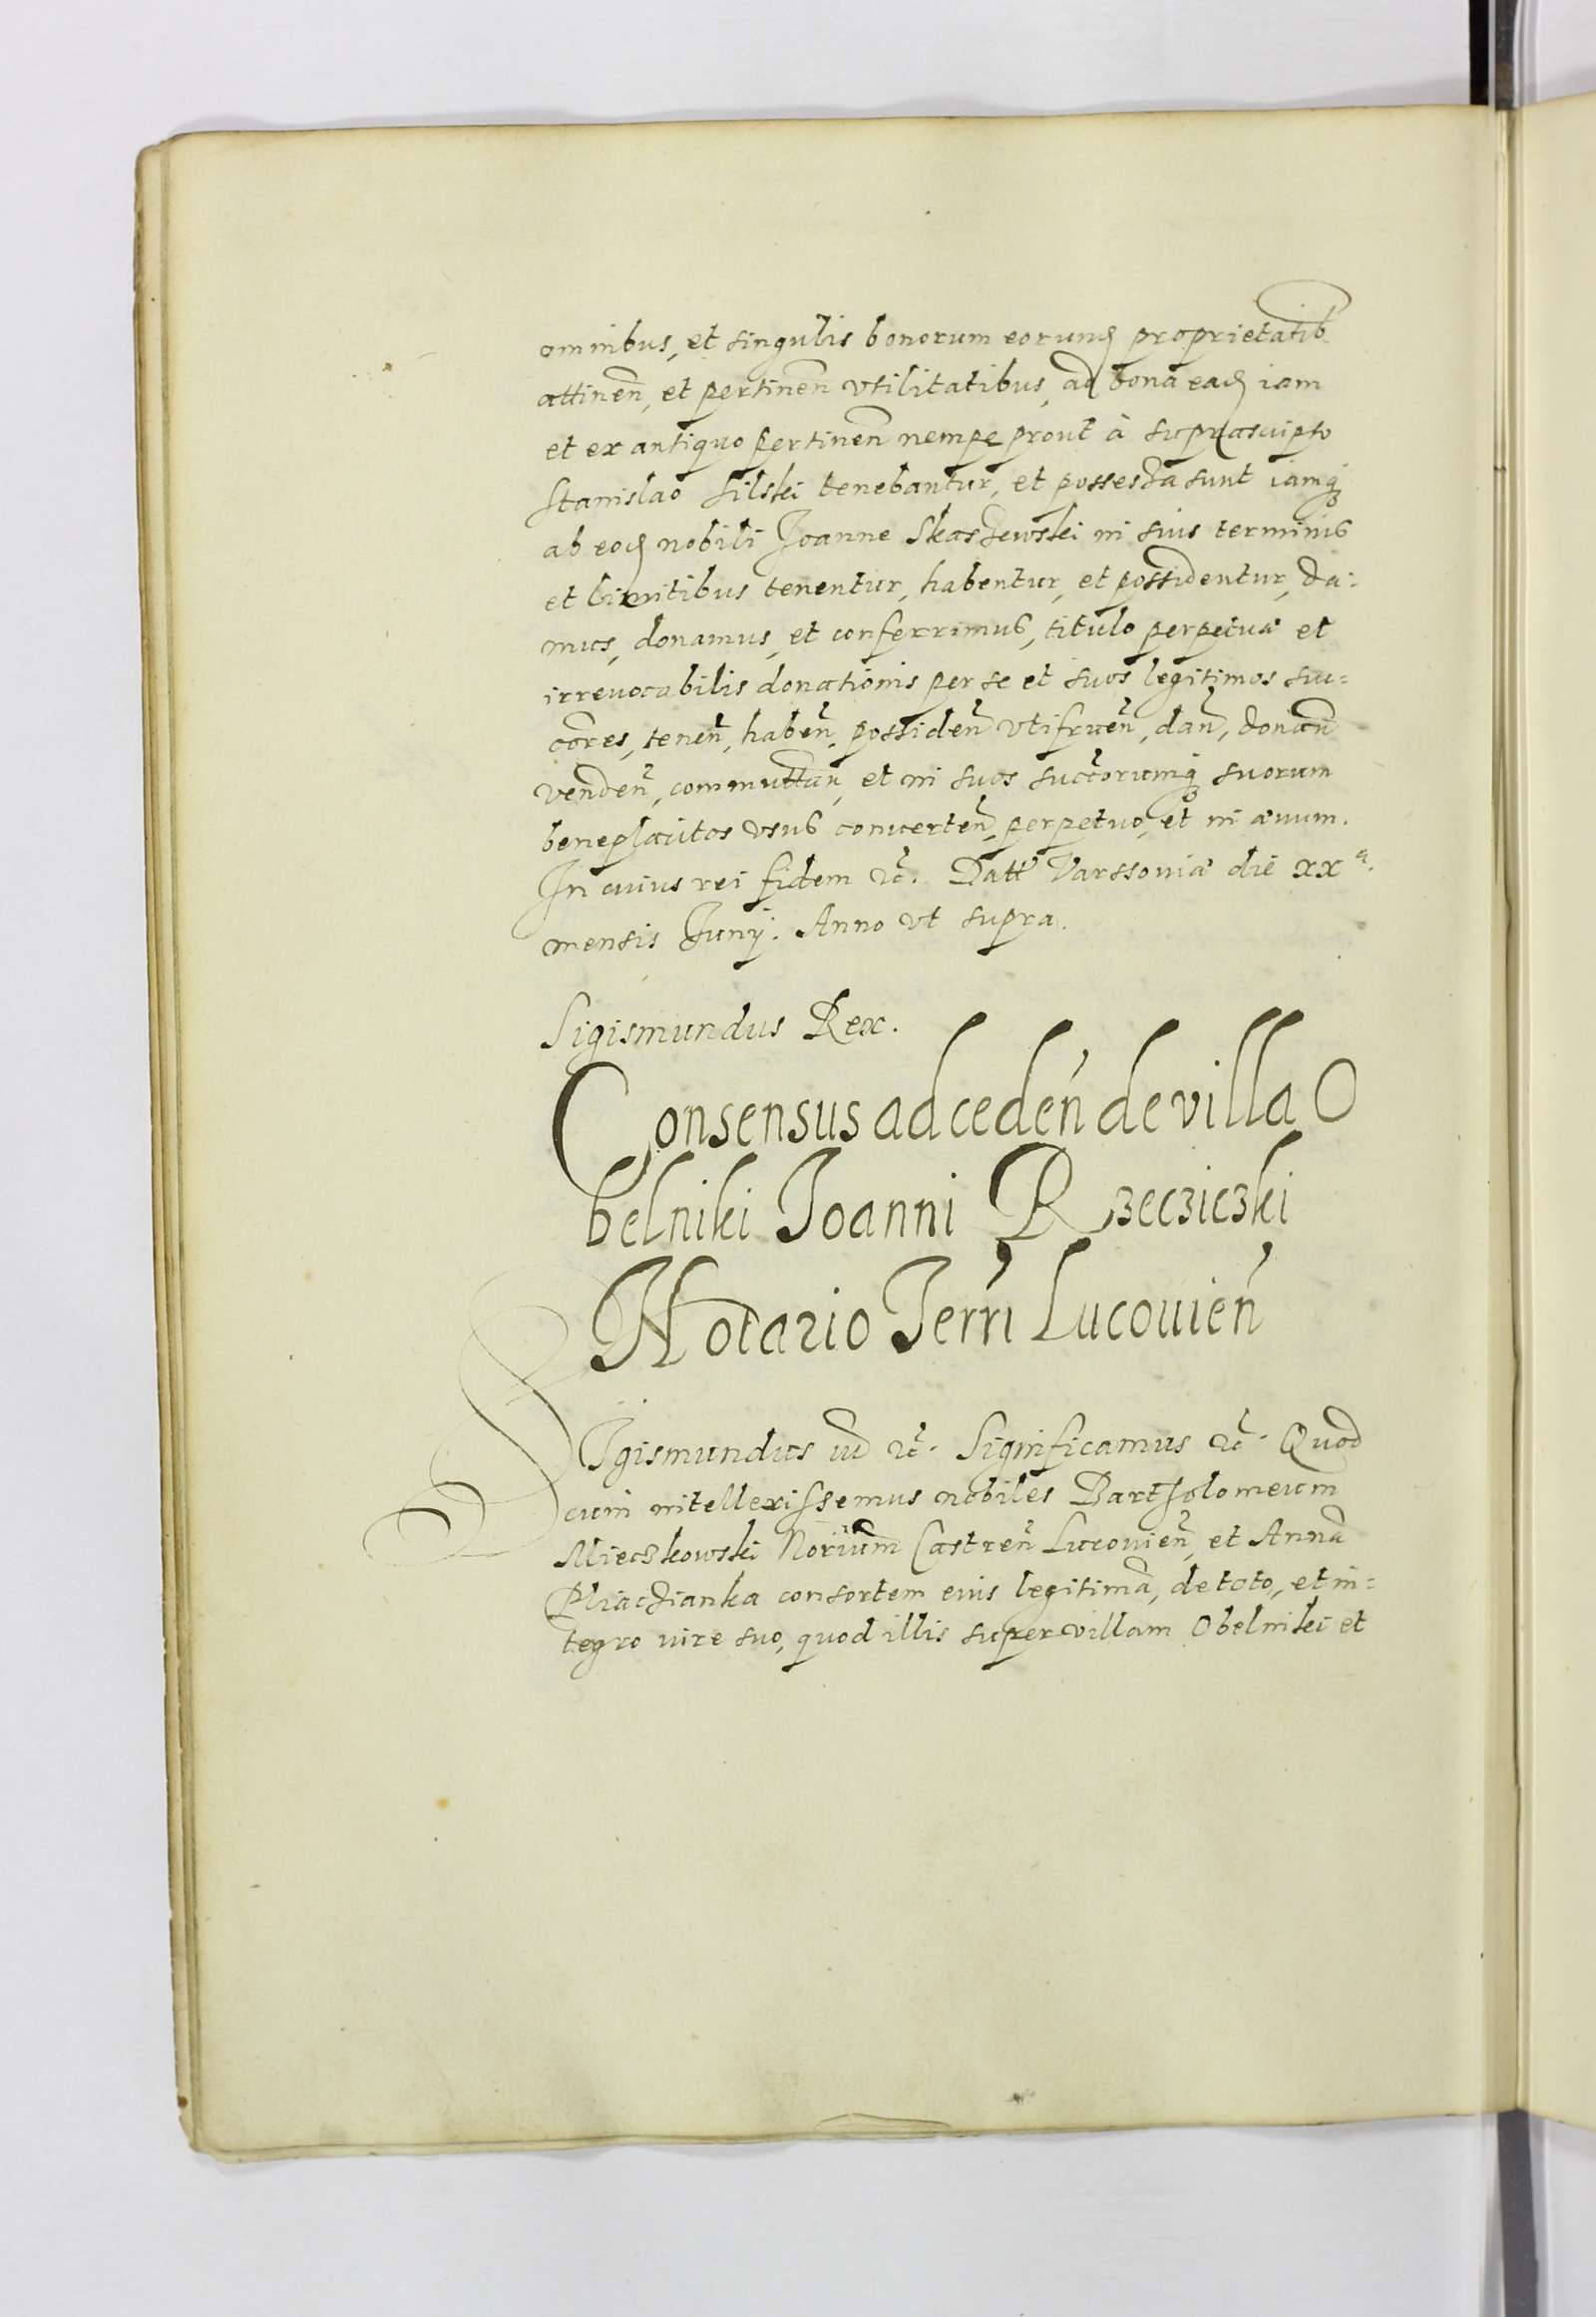 omnibus, et singulis bonorum eorund proprietatib.
attinen̄, et pertinen̄ vtilitatibus, ad bona ead iam
et ex antiquo pertinen̄ nempe prout à suprascripto
Stanislao Silski tenebantur, et possessa sunt iamq
ab eod nobili Joanne Skaszewski in suis terminis
et limitibus tenentur, habentur, et possidentur, da=
mus, donamus, et conferrimus, titulo perpetuæ et
irreuocabilis donationis per se et suos legitimos suc=
cores, tenen̄, haben̄, possiden̄ vtifruen̄, dan̄, donan̄
venden̄, commuttan̄, et in suos succorumq suorum
beneplacitos vsus conuerten̄, perpetuo, et in æuum.
In cuius rei fidem &c. Datt Varssouiæ die xxa.
mensis Junij. Anno vt supra.
Sigismundus Rex.
Consensus ad ceden̄ de villa O
belniki Joanni Rzecziczki
Notario Terri Lucouien̄
SIgismundus iii &c. Significamus &c. Quod
cum intellexissemus nobiles Bartholomeum
Mieczkowski Norium Castren̄ Lucouien̄, et Annā
Pliaczianka consortem eius legitimā, de toto, et in=
tegro iure suo, quod illis super villam Obelniki et